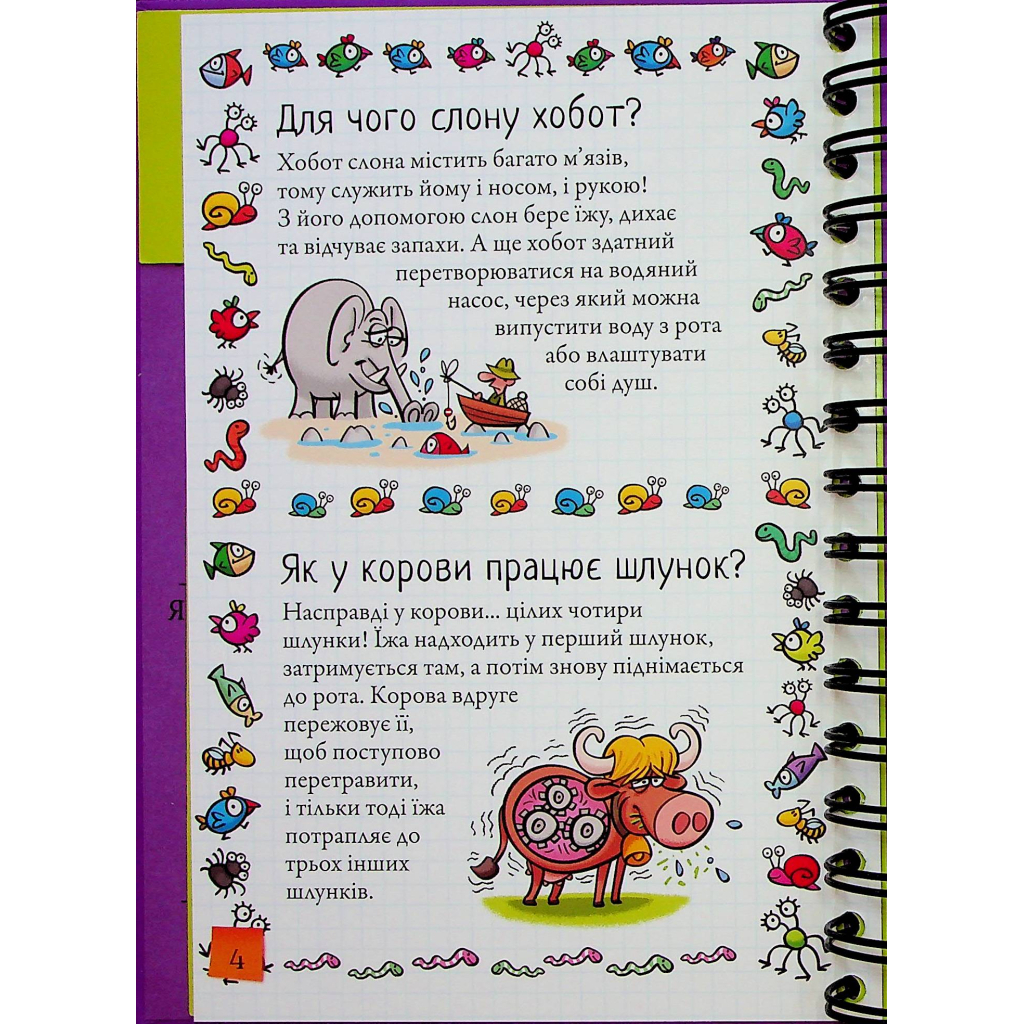 Для чого слону хобот?
Хобот слона містить багато м’язів,
тому служить йому і носом, і рукою!
З його допомогою слон бере їжу, дихає
та відчуває запахи. А ще хобот здатний
перетворюватися на водяний
насос, через який можна
випустити воду з рота
або влаштувати
собі душ.
Як у корови працює шлунок?
Насправді у корови... цілих чотири
шлунки! Їжа надходить у перший шлунок,
затримується там, а потім знову піднімається
до рота. Корова вдруге
пережовує її,
щоб поступово
перетравити,
і тільки тоді їжа
потрапляє до
трьох інших
шлунків.
Я
4